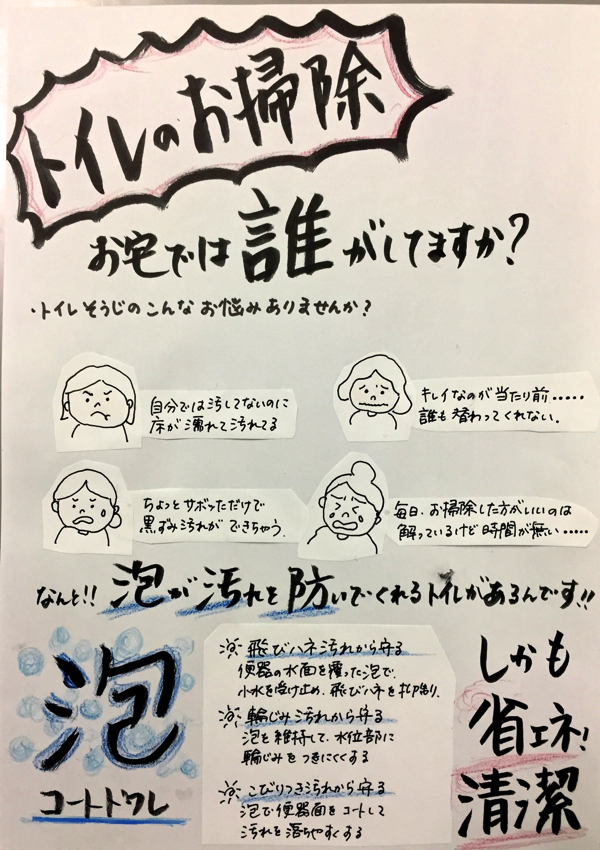 トイレのお掃除
お宅では誰がしてますか?
・トイレそうじのこんなお悩みありませんか?
自分では汚してないのに
床が濡れて汚れてる
キレイなのが当たり前.....
誰も替わってくれない.
ちょっとサボッただけで
黒ずみ汚れができちゃう.
毎日、お掃除した方がいいのは
解っているけど時間が無い.....
なんと!!泡が汚れを防いでくれるトイレがあるんです!!
泡
コートトワレ
飛びハネ汚れから守る
便器の水面を覆った泡で、
小水を受け止め、飛びハネを抑制り.
輪じみ汚れから守る
泡を維持して、水位部に
輪じみをつきにくくする
こびりつき汚れから守る
泡で便器面をコートして
汚れを落ちやすくする
しかも
省エネ!
清潔